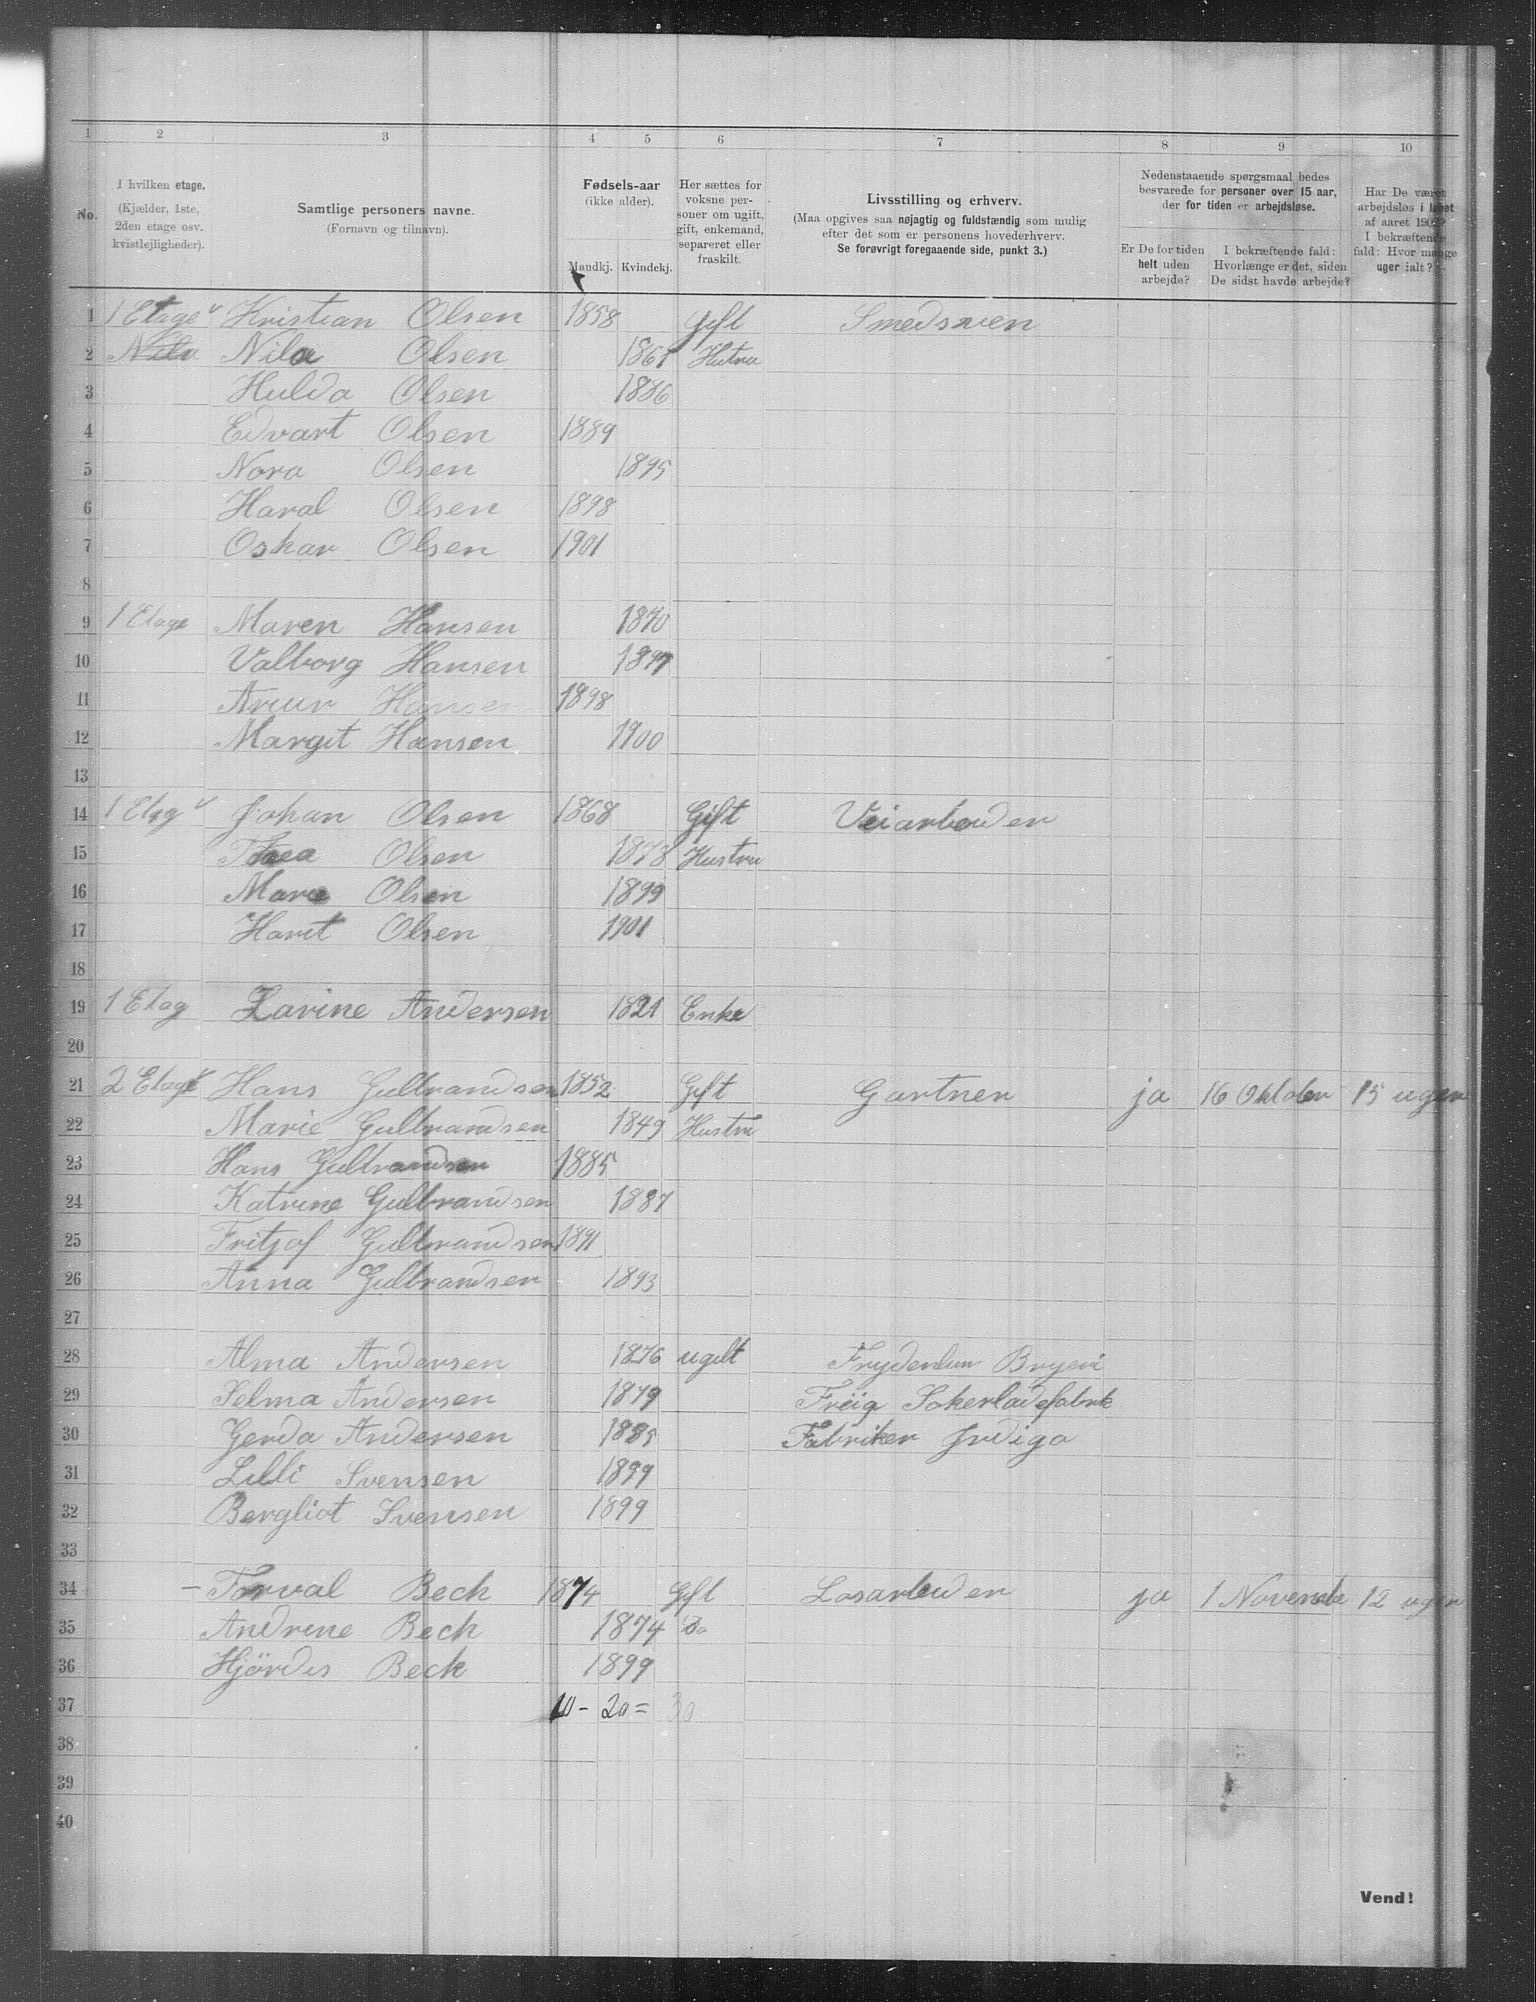 1 2 3 4 5 6 7 8 9 10
No.
I hvilken etage.
(Kjælder, 1ste,
2den etage osv.
kvistlejligheder).
Samtlige personers navne.
(Fornavn og tilnavn).
Fødsels-aar
(ikke alder).
Mandkj. Kvindekj.
Her sættes for
voksne per-
soner om ugift,
gift, enkemand,
separeret eller
fraskilt.
Livsstilling og erhverv.
(Maa opgives saa nøjagtig og fuldstændig som mulig
efter det som er personens hovederhverv.
Se forøvrigt foregaaende side, punkt 3.)
Nedenstaaende spørgsmaal bedes
besvarede for personer over 15 aar,
der for tiden er arbejdsløse.
Er De for tiden
helt uden
arbejde?
I bekræftende fald:
Hvorlænge er det, siden
De sidst havde arbejde?
Har De været
arbejdsløs i løbet
af aaret 1902?
I bekræftende
fald: Hvor mange
uger ialt?
1 1 Etage Kristian Olsen 1858 Gift Smedsven
2 Nila Nila Olsen 1861 Hutru
3 Hulda Olsen 1886
4 Edvart Olsen 1889
5 Nora Olsen 1895
6 Haral Olsen 1898
7 Oskar Olsen 1901
8
9 1 Etage Maren Hansen 1870
10 Valborg Hansen 1897
11 Artur Hansen 1898
12 Margit Hansen 1900
13
14 1 Etag Johan Olsen 1868 Gift Veiarbeider
15 Olsen 1878 Hustru
16 Olsen 1899
17 Harit Olsen 1901
18
19 1 Etag Larine Andersen 1821 Enke
20
21 2 Etage Hans Gulbrandsen 1852 Gift Gartner ja 16 Oktober 15 uger
22 Marie Gulbrandsen 1849 Hustru
23 Hans Gulbrandsen 1885
24 Katrine Gulbrandsen 1887
25 Fritjof Gulbrandsen 1891
26 Anna Gulbrandsen 1893
27
28 Alma Andersen 1876 ugift Frydenlun Bryeri
29 Selma Andersen 1879 Freia Sokerladefabrik
30 Gerda Andersen 1885 Fabriker
31 Lilli Svensen 1899
32 Bergliot Svensen 1899
33
34 – Torval Beck 1874 Gift Losarbeider ja 1 Novembe 12 uger
35 Andrine Beck 1874 Do
36 Hjördis Beck 1899
37 10 – 20 = 30
38
39
40
Vend!